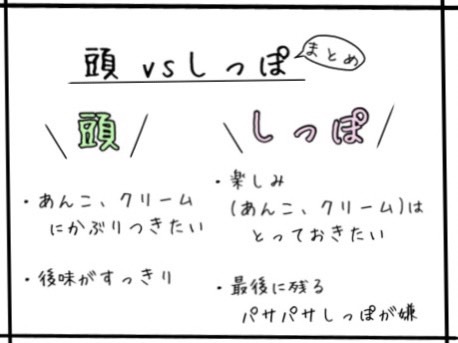 頭 vsしっぽ
まとめ
頭
・あんこ、クリーム
にかぶりつきたい
・後味がすっきり
しっぽ
・楽しみ
(あんこ、クリーム)は
とっておきたい
・最後に残る
パサパサしっぽが嫌